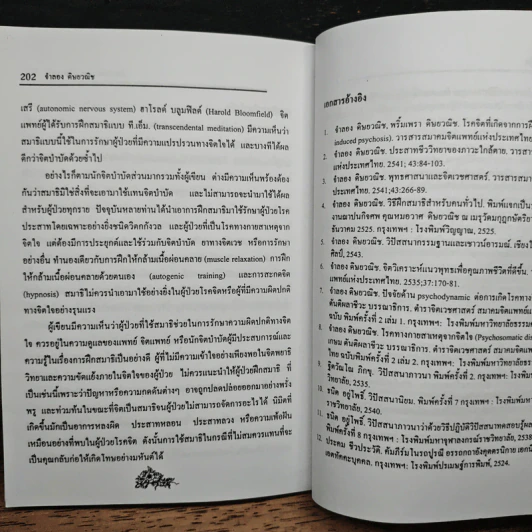 202 จำลอง ดิษยวณิช
เสรี (autonomic nervous system) ฮาโรลด์ บลูมฟิลด์ (Harold Bloomfield) จิต
แพทย์ผู้ได้รับการฝึกสมาธิแบบ ที.เอ็ม. (transcendental meditation) มีความเห็นว่า
สมาธิแบบนี้ใช้ในการรักษาผู้ป่วยที่มีความแปรปรวนทางจิตใจได้ และบางทีได้ผล
ดีกว่าจิตบำบัดด้วยซ้ำไป
อย่างไรก็ตามนักจิตบำบัดส่วนมากรวมทั้งผู้เขียน ต่างมีความเห็นพร้องต้อง
กันว่าสมาธิมิใช่สิ่งที่จะเอามาใช้แทนจิตบำบัด และไม่สามารถจะนำมาใช้ได้ผล
สำหรับผู้ป่วยทุกราย ปัจจุบันหลายท่านได้นำเอาการฝึกสมาธิมาใช้รักษาผู้ป่วยโรค
ประสาทโดยเฉพาะอย่างยิ่งชนิดวิตกกังวล และผู้ป่วยที่เป็นโรคทางกายสาเหตุจาก
จิตใจ แต่ต้องมีการประยุกต์และใช้ร่วมกับจิตบำบัด ยาทางจิตเวช หรือการรักษา
อย่างอื่น ทำนองเดียวกับการฝึกให้กล้ามเนื้อผ่อนคลาย (muscle relaxation) การฝึก
ให้กล้ามเนื้อผ่อนคลายด้วยตนเอง (autogenic training) และการสะกดจิต
(hypnosis) สมาธิไม่ควรนำเอามาใช้อย่างยิ่งในผู้ป่วยโรคจิตหรือผู้ที่มีความผิดปกติ
ทางจิตใจอย่างรุนแรง
ผู้เขียนมีความเห็นว่าผู้ป่วยที่ใช้สมาธิช่วยในการรักษาความผิดปกติทางจิต
ใจ ควรอยู่ในความดูแลของแพทย์ จิตแพทย์ หรือนักจิตบำบัดผู้มีประสบการณ์และ
ความรู้ในเรื่องการฝึกสมาธิเป็นอย่างดี ผู้ที่ไม่มีความเข้าใจอย่างเพียงพอในจิตพยาธิ
วิทยาและความขัดแย้งภายในจิตใจของผู้ป่วย ไม่ควรแนะนำให้ผู้ป่วยฝึกสมาธิ ที่
เป็นเช่นนี้เพราะว่าปัญหาหรือความกดดันต่างๆ อาจถูกปลดปล่อยออกมาอย่างพรั่ง
พรู และท่วมท้นในขณะที่จิตเป็นสมาธิจนผู้ป่วยไม่สามารถจัดการอะไรได้ นิมิตที่
เกิดขึ้นมักเป็นอาการหลงผิด ประสาทหลอน ประสาทลวง หรือความเพ้อฝัน
เหมือนอย่างที่พบในผู้ป่วยโรคจิต ดังนั้นการใช้สมาธิในกรณีที่ไม่สมควรแทนที่จะ
เป็นคุณกลับก่อให้เกิดโทษอย่างมหันต์ได้
เอกสารอ้างอิง
1. จำลอง ดิษยวณิช, พริ้มเพรา ดิษยวณิช. โรคจิตที่เกิดจากการฝึก
induced psychosis). วารสารสมาคมจิตแพทย์แห่งประเทศไทย
2. จำลอง ดิษยวณิช. ประสาทชีววิทยาของภาวะใกล้ตาย. วารสาร
แห่งประเทศไทย. 2541; 43:84-103.
3. จำลอง ดิษยวณิช. พุทธศาสนาและจิตเวชศาสตร์. วารสารสม
ประเทศไทย. 2541;43:266-89.
4. จำลอง ดิษยวณิช. วิธีฝึกสมาธิสำหรับคนทั่วไป. พิมพ์แจกเป็น
งานฌาปนกิจศพ คุณหมอวาศ ดิษยวณิช ณ เมรุวัดมกุฏกษัตริยา
ธันวาคม 2525. กรุงเทพฯ : โรงพิมพ์วิญญาณ, 2525.
5. จำลอง ดิษยวณิช. วิปัสสนากรรมฐานและเชาวน์อารมณ์. เชียงใ
ศิลป์, 2543.
6. จำลอง ดิษยวณิช. จิตวิเคราะห์แนวพุทธเพื่อคุณภาพชีวิตที่ดีขึ้น.
แพทย์แห่งประเทศไทย. 2535;37:170-81.
7. จำลอง ดิษยวณิช. ปัจจัยด้าน psychodynamic ต่อการเกิดโรคทาง
ตันติผลาชีวะ บรรณาธิการ. ตำราจิตเวชศาสตร์ สมาคมจิตแพทย์แ
ฉบับ พิมพ์ครั้งที่ 2 เล่ม 1. กรุงเทพฯ: โรงพิมพ์มหาวิทยาลัยธรรม
8. จำลอง ดิษยวณิช. โรคทางกายสาเหตุจากจิตใจ (Psychosomatic di
เกษม ตันติผลาชีวะ บรรณาธิการ. ตำราจิตเวชศาสตร์ สมาคมจิตแพ
ไทย ฉบับพิมพ์ครั้งที่ 2 เล่ม 2. กรุงเทพฯ : โรงพิมพ์มหาวิทยาลัย
9. ฐิตวัณโณ ภิกขุ. วิปัสสนาภาวนา พิมพ์ครั้งที่ 2. กรุงเทพฯ : โรง
วิทยาลัย, 2535.
10. ธนิต อยู่โพธิ์. วิปัสสนานิยม. พิมพ์ครั้งที่ 7 กรุงเทพฯ : โรงพิมพ์มห
ราชวิทยาลัย, 2540.
11. ธนิต อยู่โพธิ์. วิปัสสนาภาวนาว่าด้วยวิธีปฏิบัติวิปัสสนาทดสอบรู้ผล
พิมพ์ครั้งที่ 8 กรุงเทพฯ : โรงพิมพ์มหาจุฬาลงกรณ์ราชวิทยาลัย, 2538
12. ประคม ชีวประวัติ. คัมภีร์มโนรถปูรณี อรรถกถาอังคุตตรนิกาย เอกนิ
เอตทัคคะบุคคล. กรุงเทพฯ: โรงพิมพ์ประเมษฐ์การพิมพ์, 2524.